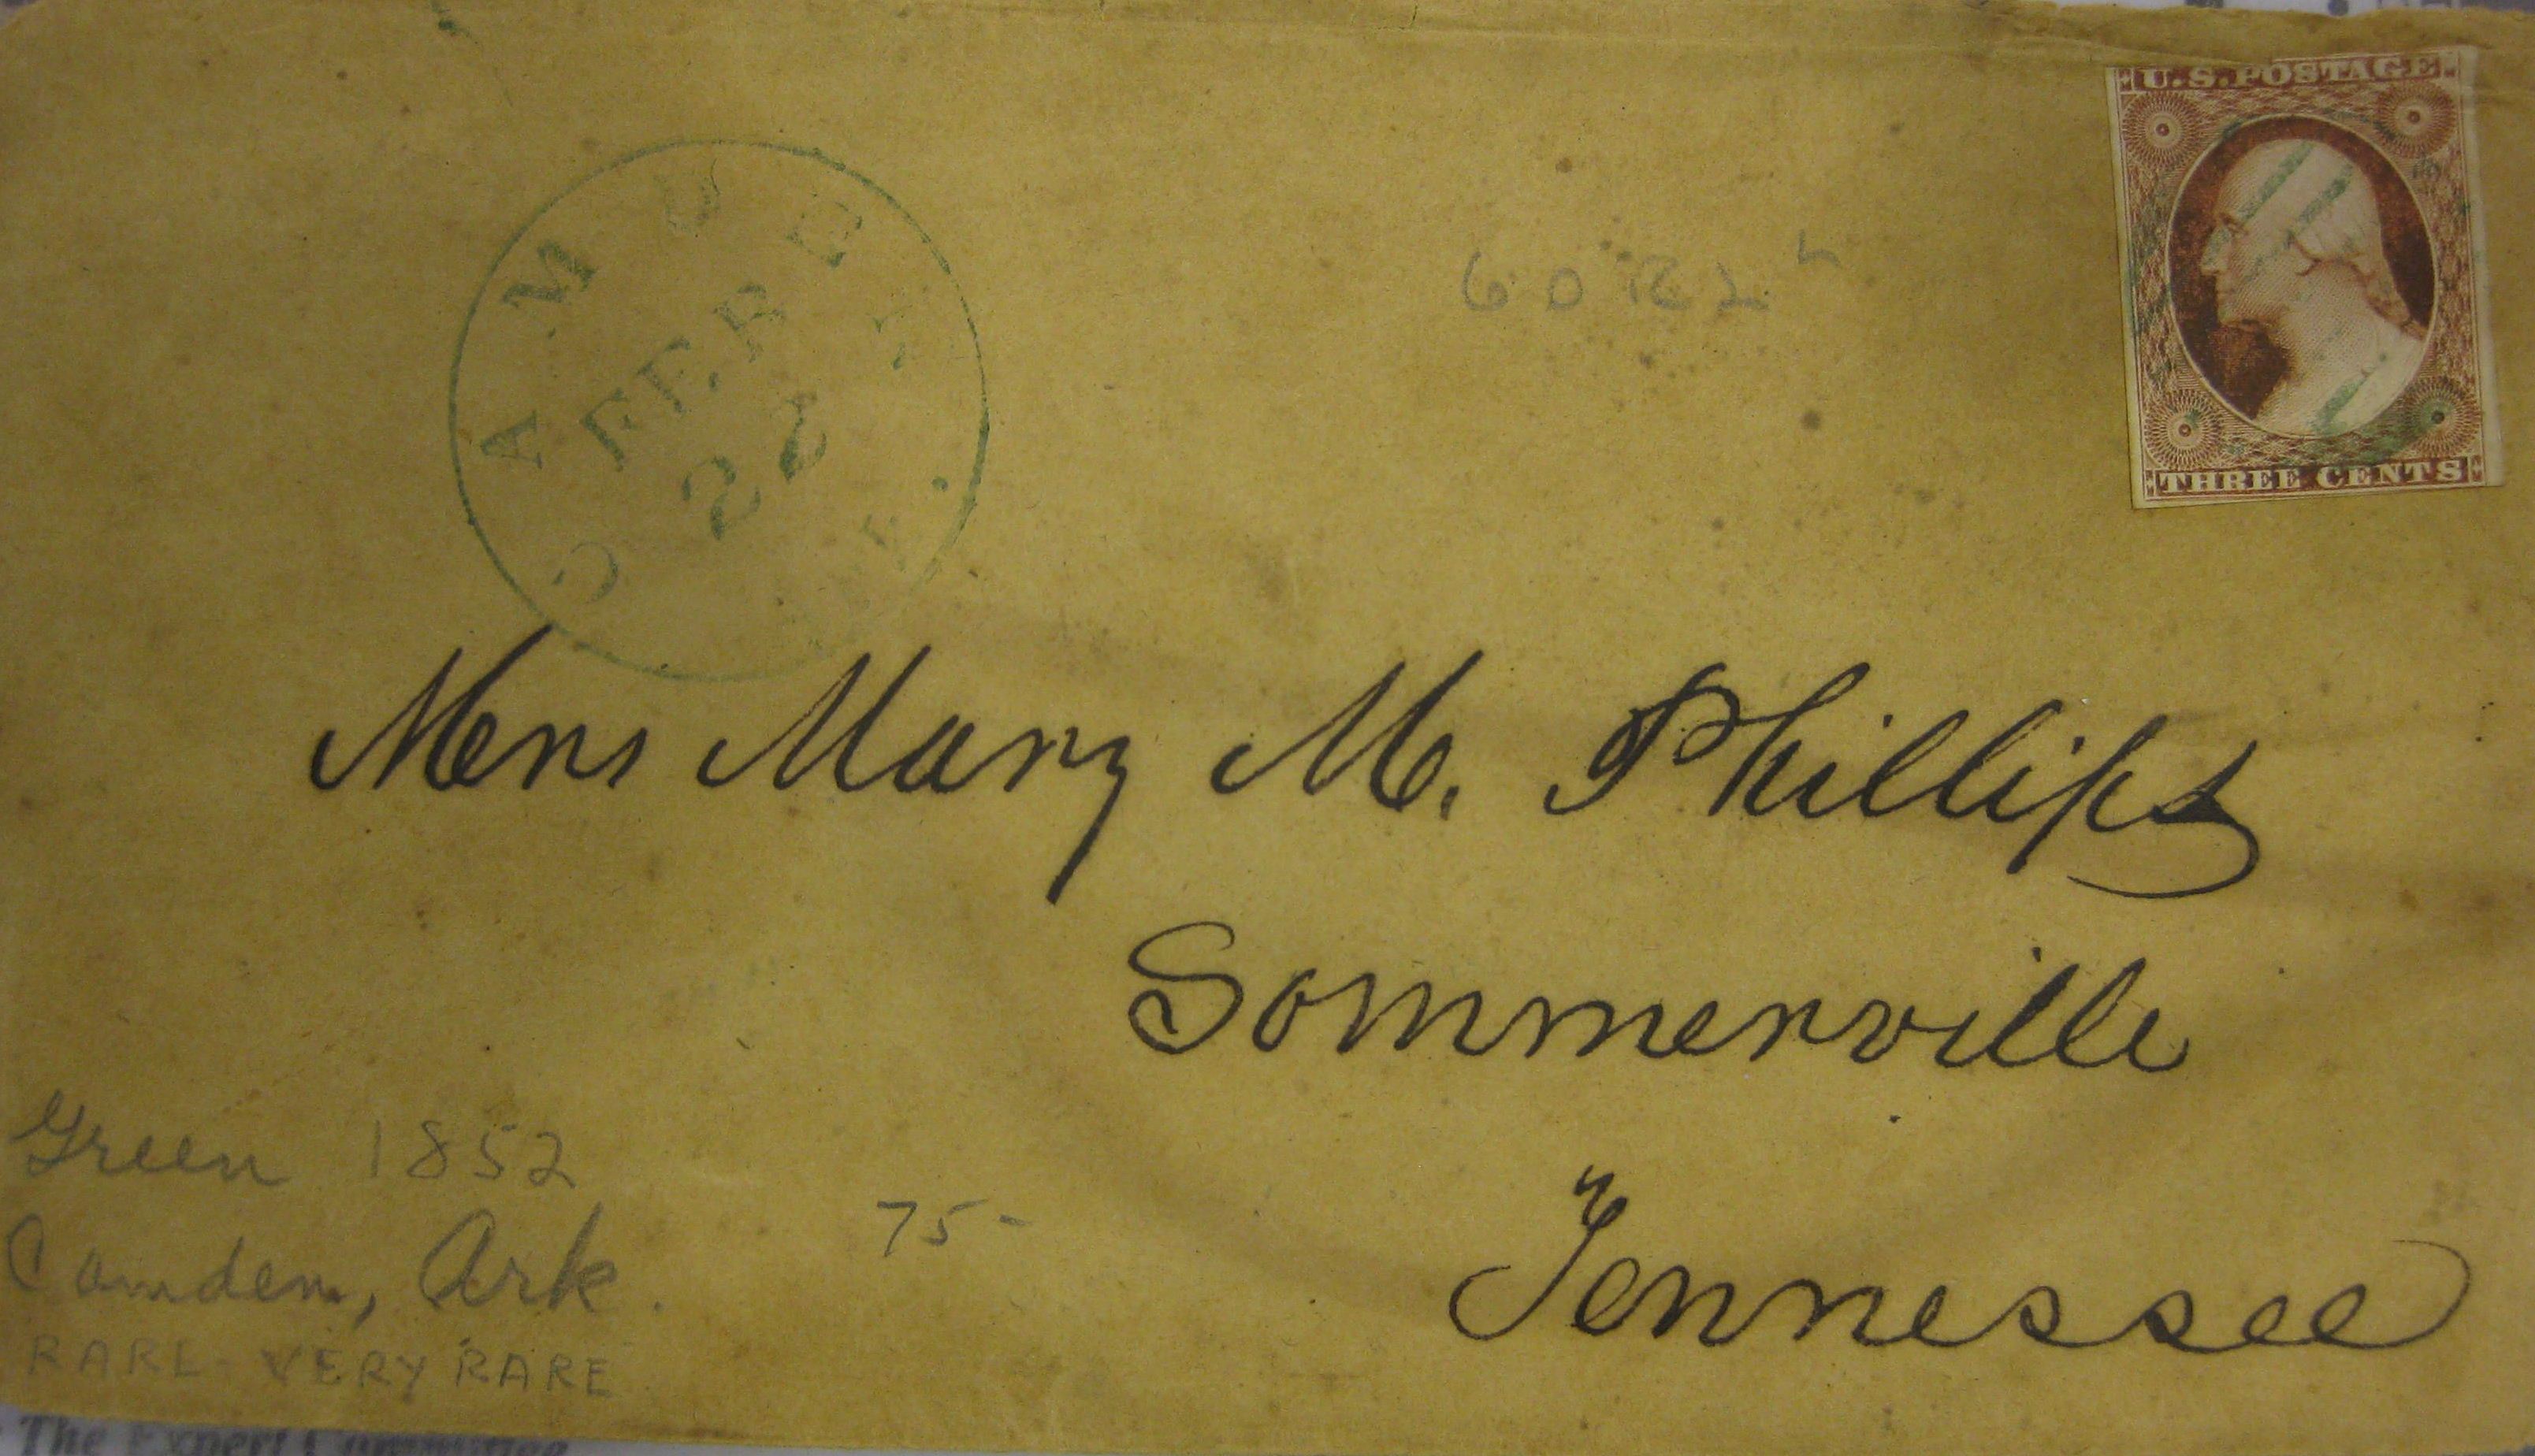 U.S. POSTAGE
THREE CENTS
CAMDEN
FEB
22
Mrs Mary M. Phillips
Sommerville
Tennessee
Green 1852
Camden, Ark.
RARE - VERY RARE
75-
The Expert Committee